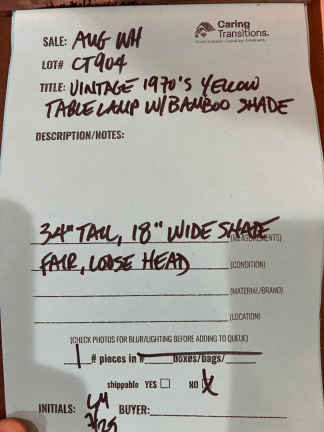 Caring
Transitions.
SALE: AUG WH
LOT# CT904
TITLE: VINTAGE 1970'S YELLOW
TABLE LAMP W/BAMBOO SHADE
DESCRIPTION/NOTES:
34" TALL, 18" WIDE SHADE (MEASUREMENTS)
FAIR, LOOSE HEAD (CONDITION)
(MATERIAL/BRAND)
(LOCATION)
(CHECK PHOTOS FOR BLUR/LIGHTING BEFORE ADDING TO QUEUE)
1 # pieces in boxes/bags/
shippable YES NO X
INITIALS: BUYER: